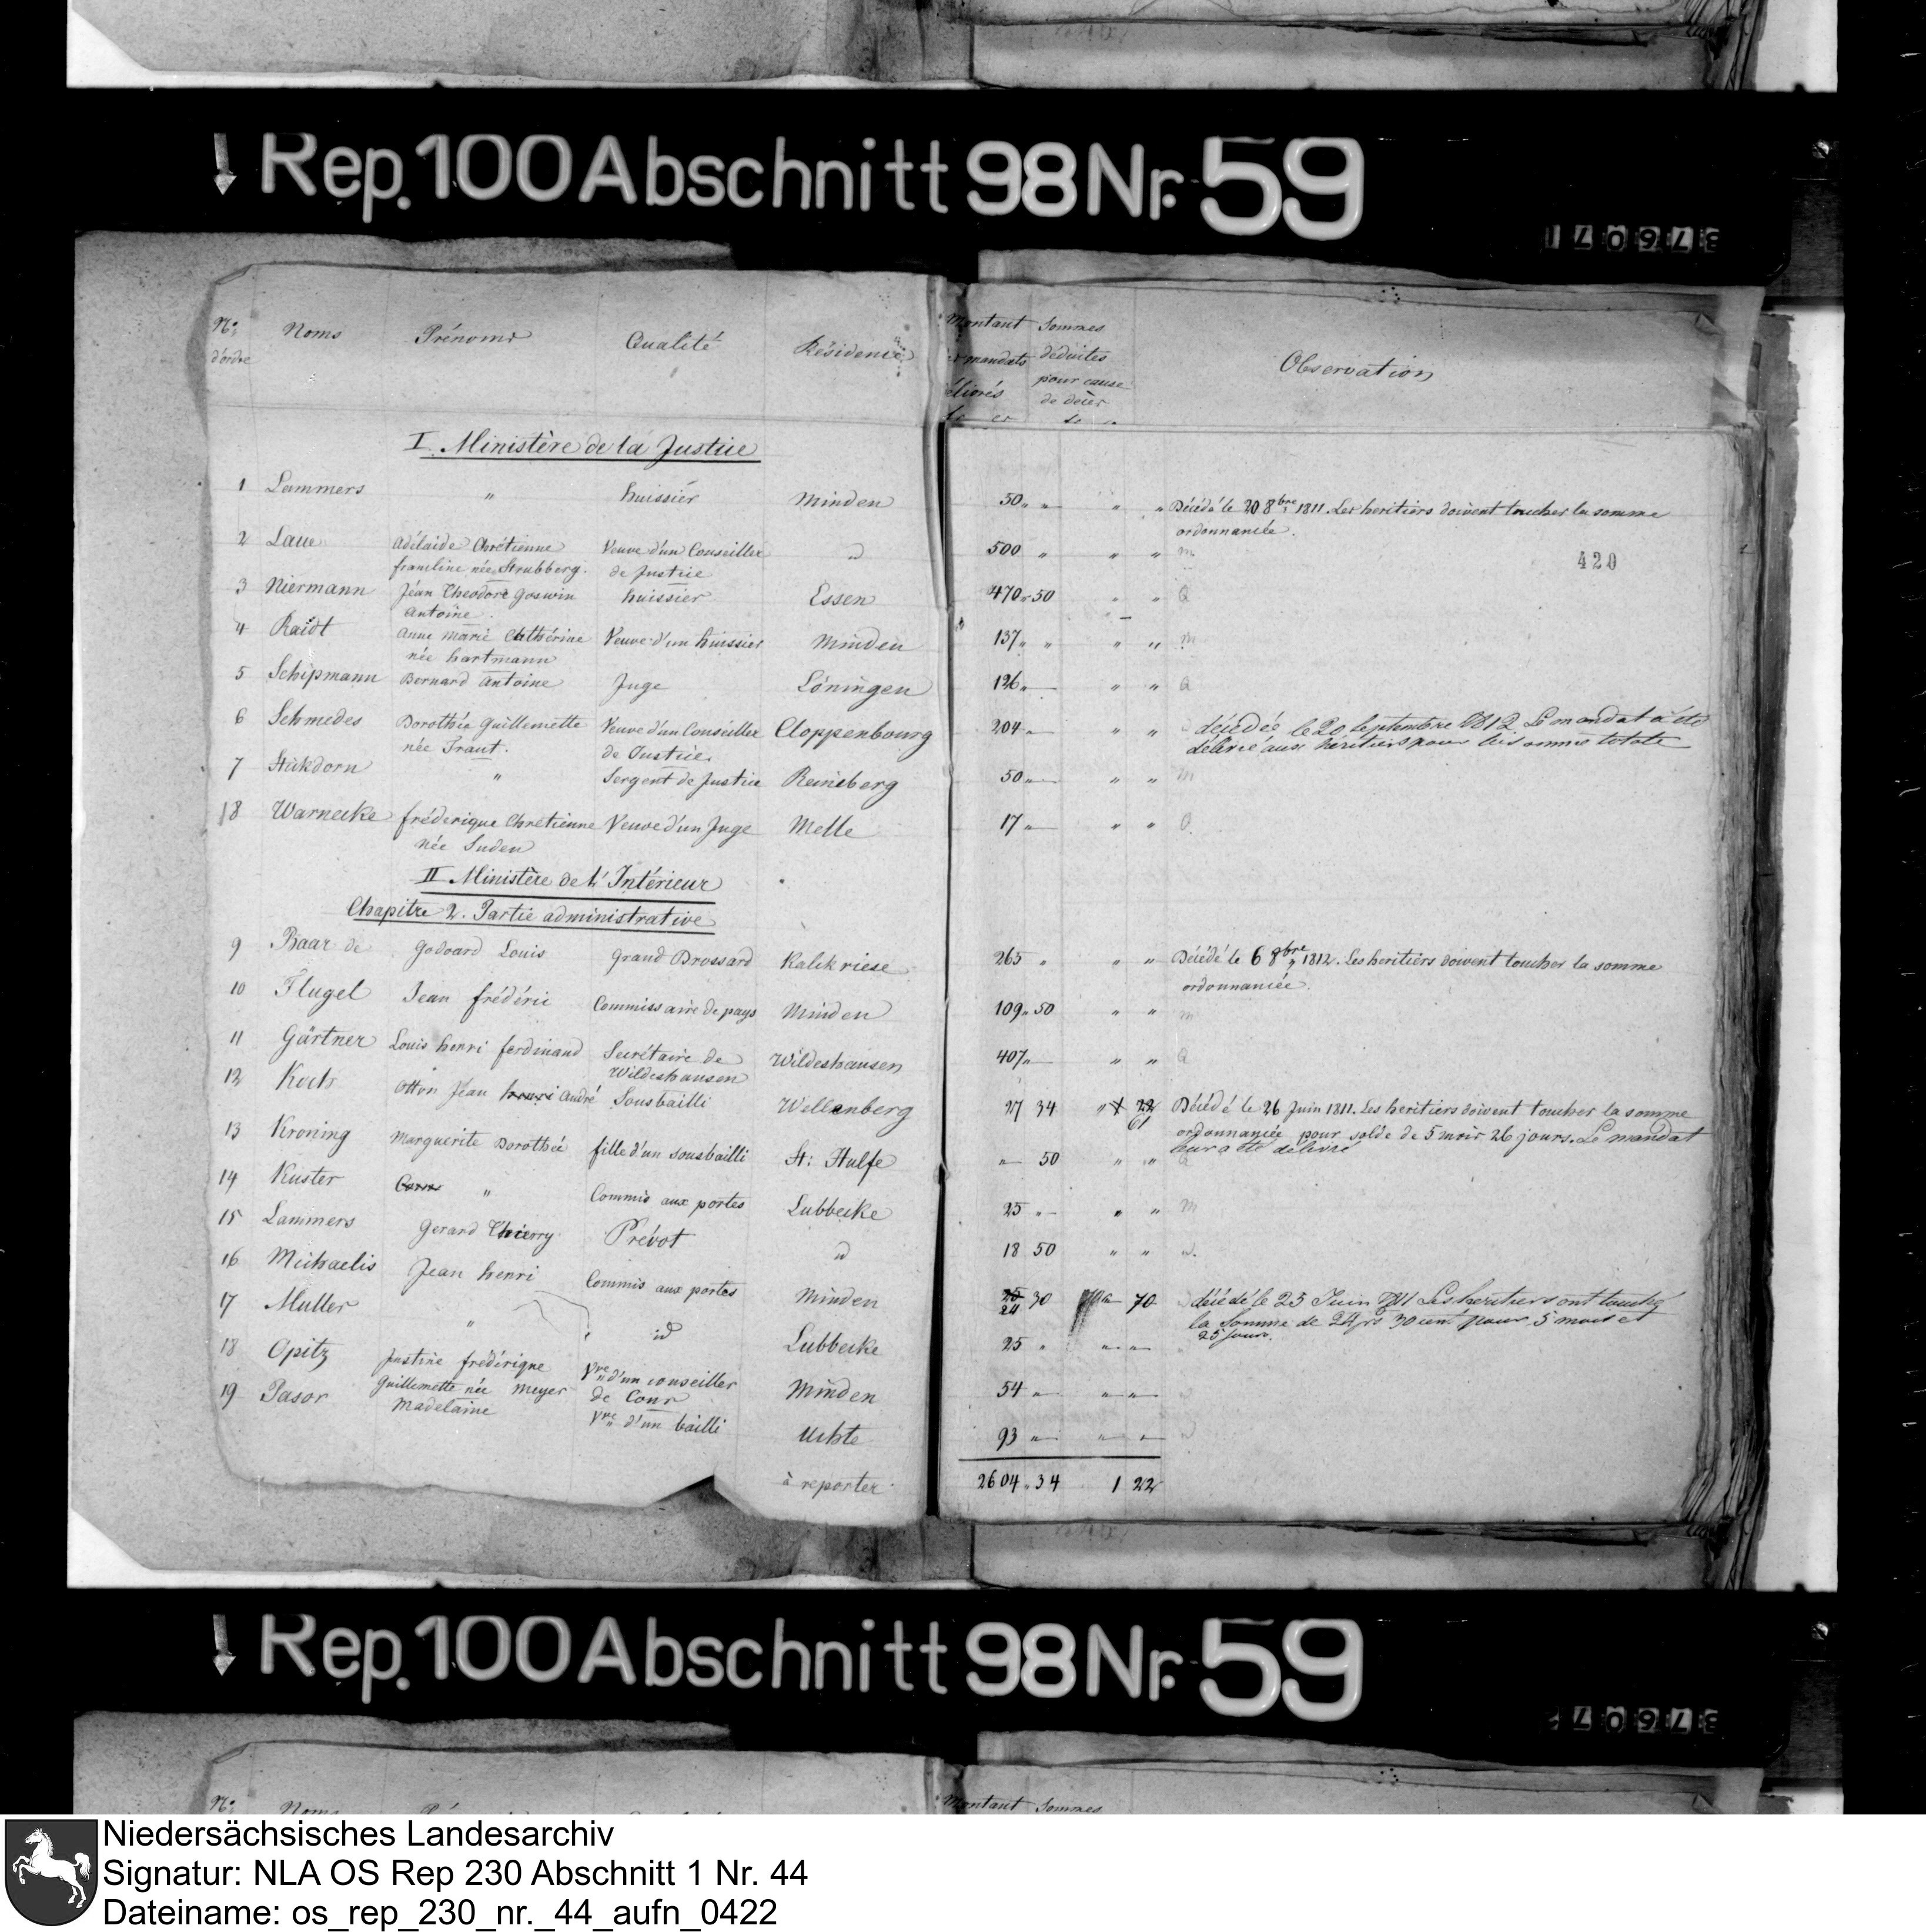 Rep. 100 Abschnitt 98 Nr. 59
N.º d'ordre Noms Prénoms Qualité Résidence Montant des mandats délivrés Sommes déduites pour cause de décès Observation
fr ct
I. Ministère de la Justice
1 Lammers " huissier Minden 50 " " " Décédé le 20 8bre 1811. Les heritiers doivent toucher la somme
ordonnancée.
2 Laue Adélaide Chrétienne Veuve d'un Conseiller id 500 " " " m
née Strubberg. de Justice
420
3 Niermann Jean Theodore Goswin huissier Essen 470 50 " " Q
Antoine
4 Raidt Anne Marie Cathérine Veuve d'un huissier Minden 137 " " " " m
née hartmann
5 Schipmann Bernard Antoine Juge Löningen 126 " " " Q
6 Schmedes Dorothée Guillemette Veuve d'un Conseiller Cloppenbourg 204 " " " décédée le 20 Septembre 1812 Le mandat a été
née Traut. de Justice. délivré aux héritiers pour la somme totale
7 Stickdorn " Sergent de Justice Reineberg 50 " " " m
8 Warnecke fréderique Chretienne Veuve d'un Juge Melle 17 " " " O.
née Suden
II Ministère de l'Intérieur
Chapitre 2. Partie administrative
9 Baar de Godoard Louis Grand Drossard Kalkriese 265 " " " Décédé le 6 8bre 1812. Les heritiers doivent toucher la somme
ordonnancée.
10 Flugel Jean frédéric Commissaire de pays Minden 109 50 " " m
11 Gärtner Louis henri ferdinand Secrétaire de Wildeshausen 407 " " " Q
Wildeshausen
12 Koch Otton Jean henri André Sousbailli Wellenberg 27 34 " 1 22 Décédé le 26 Juin 1811. Les heritiers doivent toucher la somme
61 ordonnancée pour solde de 5 mois 26 jours. Le mandat
leur a été délivré
13 Kroning Marguerite Dorothée fille d'un sousbailli St: Hulfe " 50 " " Q
14 Kuster " Commis aux portes Lubbecke 25 " " " m
15 Lammers Gerard Thierry Prévot id 18 50 " " id.
16 Michaelis Jean henri Commis aux portes Minden 25 24 30 70 décédé le 25 Juin 1811 Les heritiers ont touché
la somme de 24 frs 30 cent pour 5 mois et
25 jours.
17 Muller " id Lubbecke 25 " " "
18 Opitz Justine frédérique Vve d'un conseiller Minden 54 " " "
Guillemette née Meyer de Cour
19 Pasor Madelaine Vve d'un bailli Uchte 93 " " "
à reporter 2604 34 1 22
Rep. 100 Abschnitt 98 Nr. 59
Niedersächsisches Landesarchiv
Signatur: NLA OS Rep 230 Abschnitt 1 Nr. 44
Dateiname: os_rep_230_nr._44_aufn_0422